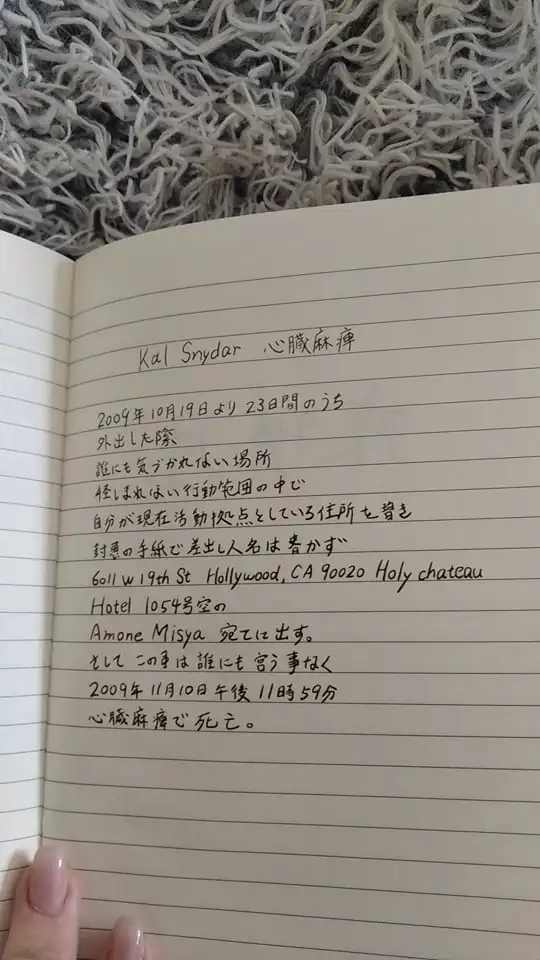 Kal Snydar 心臓麻痺
2009年10月19日より23日間のうち
外出した際
誰にも気づかれない場所
怪しまれない行動範囲の中で
自分が現在活動拠点としている住所を書き
封書の手紙で差出し人名は書かず
6011 W 19th St Hollywood, CA 90020 Holy chateau
Hotel 1054号室の
Amone Misya 宛てに出す。
そしてこの事は誰にも言う事なく
2009年11月10日午後11時59分
心臓麻痺で死亡。